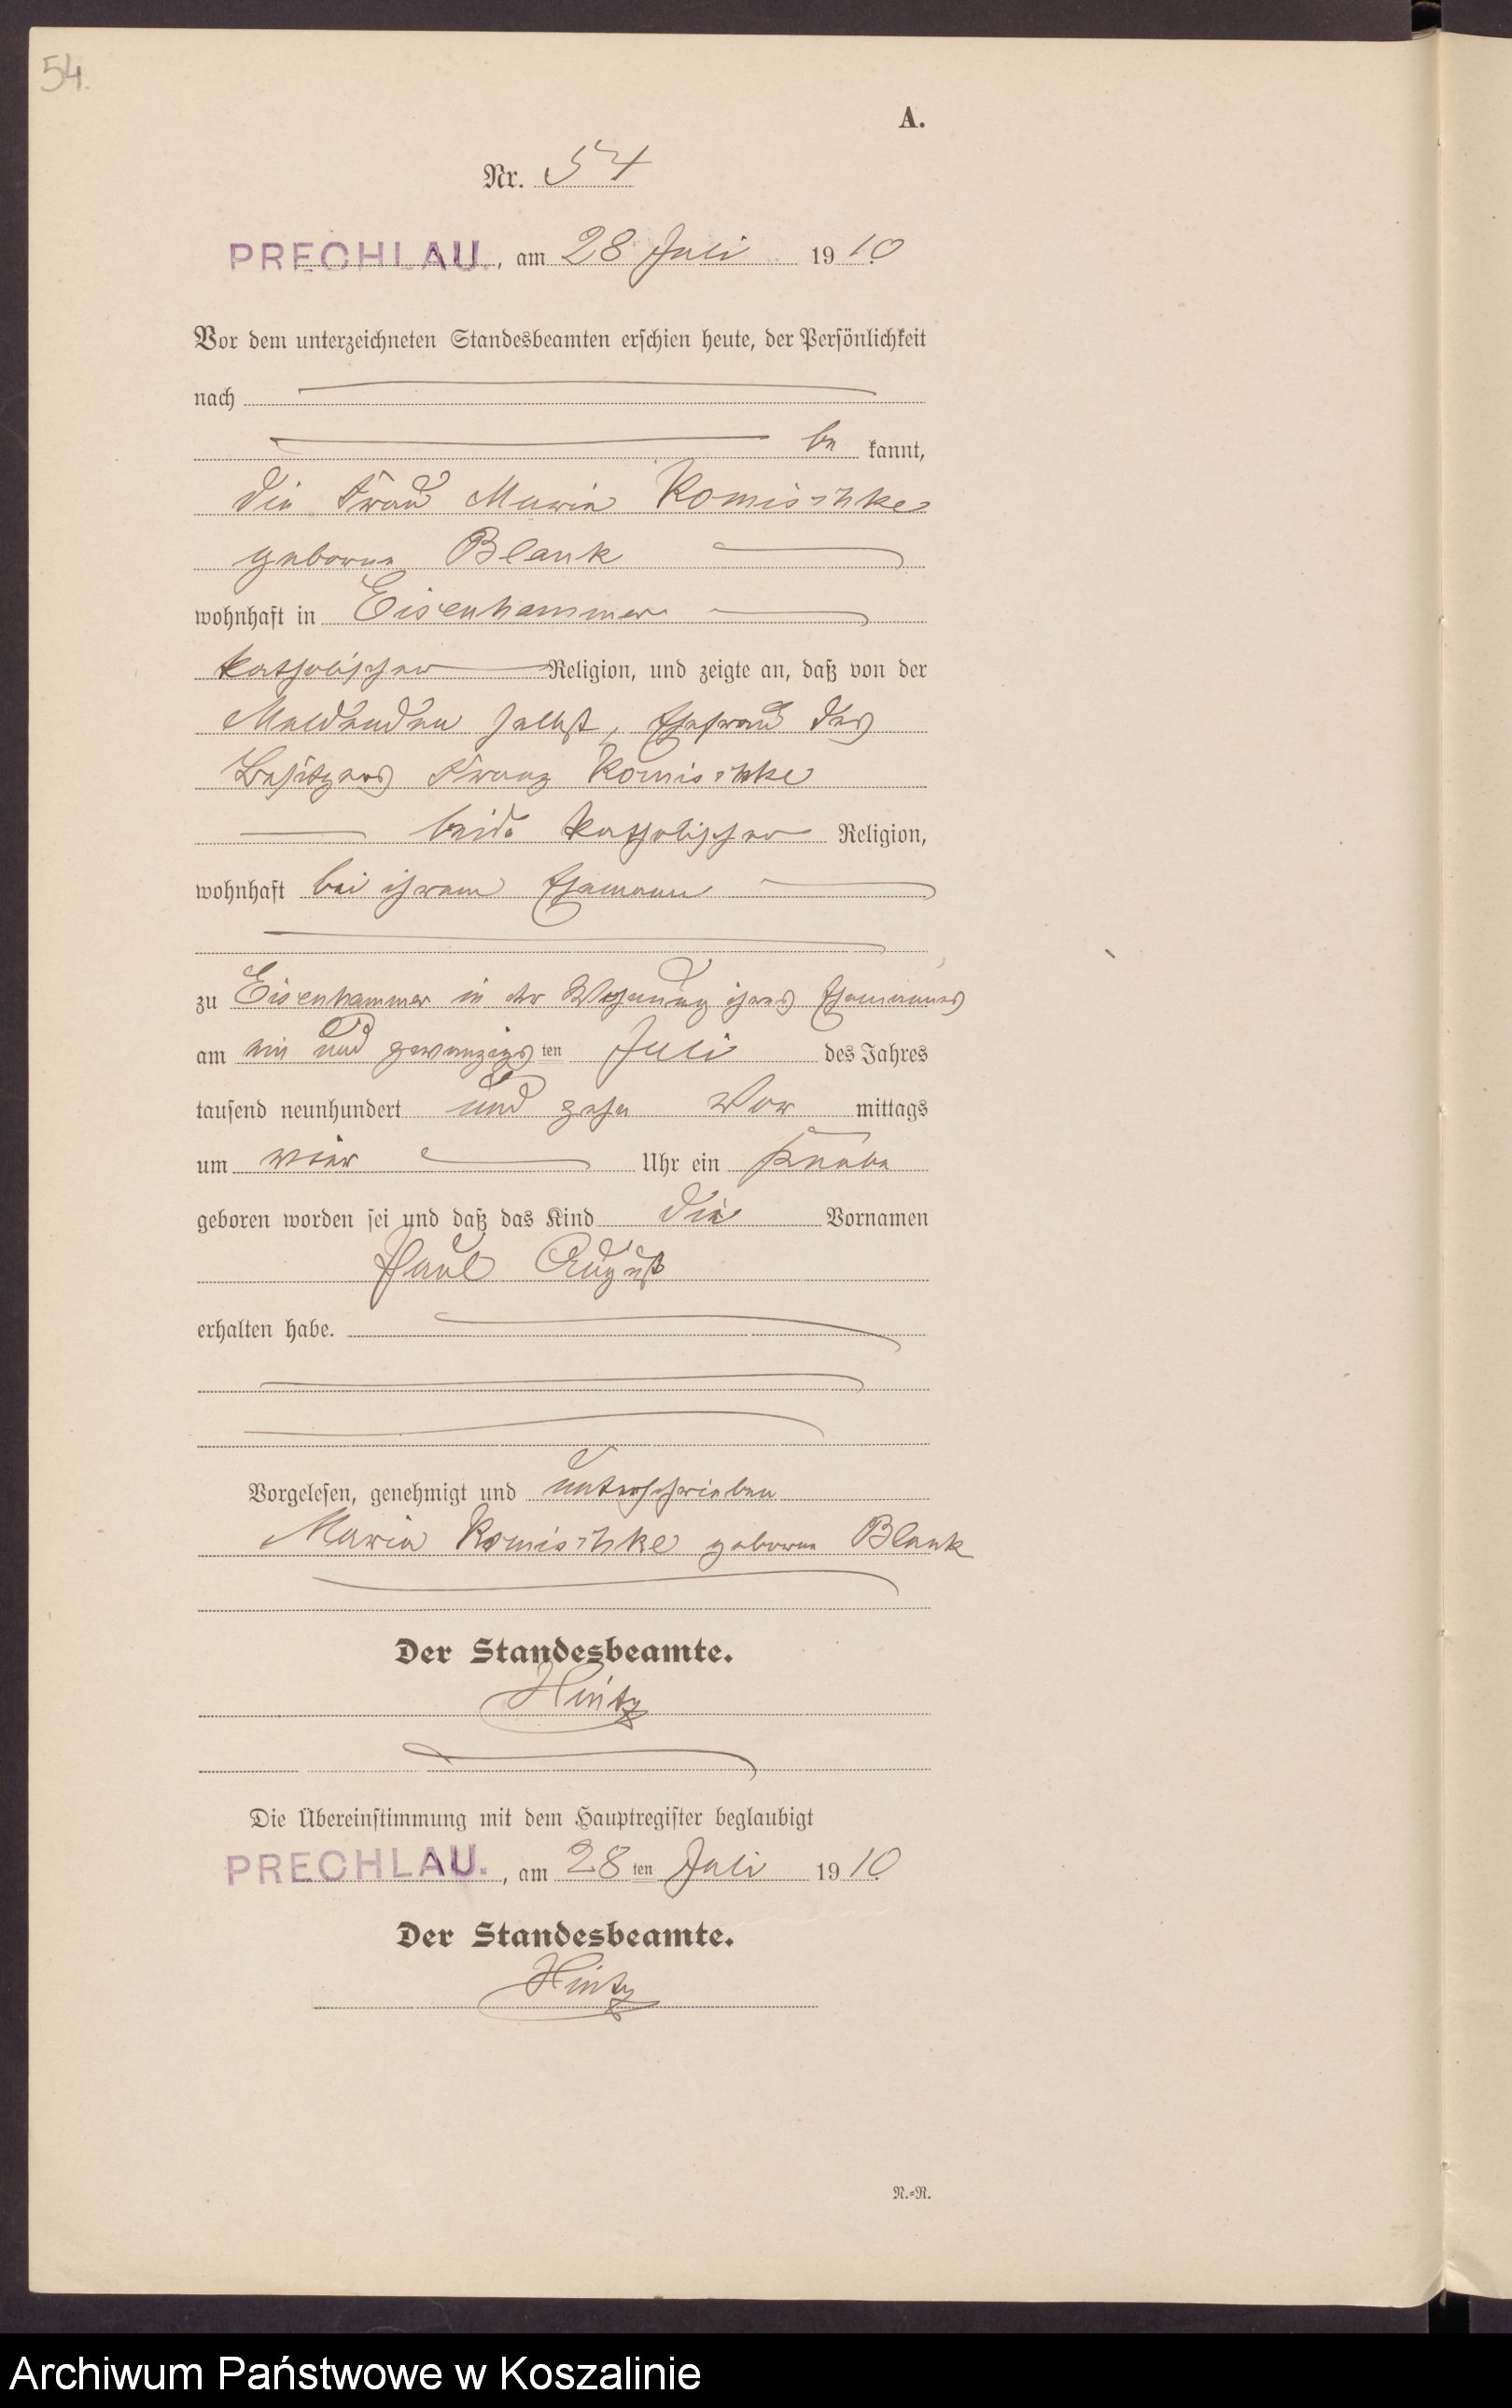 54.
A.
Nr. 54
PRECHLAU., am 28 Juli 1910
Vor dem unterzeichneten Standesbeamten erschien heute, der Persönlichkeit
nach
be kannt,
die Frau Maria Komischke
geborne Blank
wohnhaft in Eisenhammer
katholischer Religion, und zeigte an, daß von der
Meldenden selbst, Ehefrau des
Besitzers Franz Komischke
beide katholischer Religion,
wohnhaft bei ihrem Ehemann
zu Eisenhammer in der Wohnung ihres Ehemannes
am ein und zwanzigsten Juli des Jahres
tausend neunhundert und zehn Vor mittags
um vier Uhr ein Knabe
geboren worden sei und daß das Kind die Vornamen
Paul August
erhalten habe.
Vorgelesen, genehmigt und unterschrieben
Maria Komischke geborne Blank
Der Standesbeamte.
Hintz
Die Übereinstimmung mit dem Hauptregister beglaubigt
PRECHLAU., am 28 ten Juli 1910
Der Standesbeamte.
Hintz
N.=R.
Archiwum Państwowe w Koszalinie